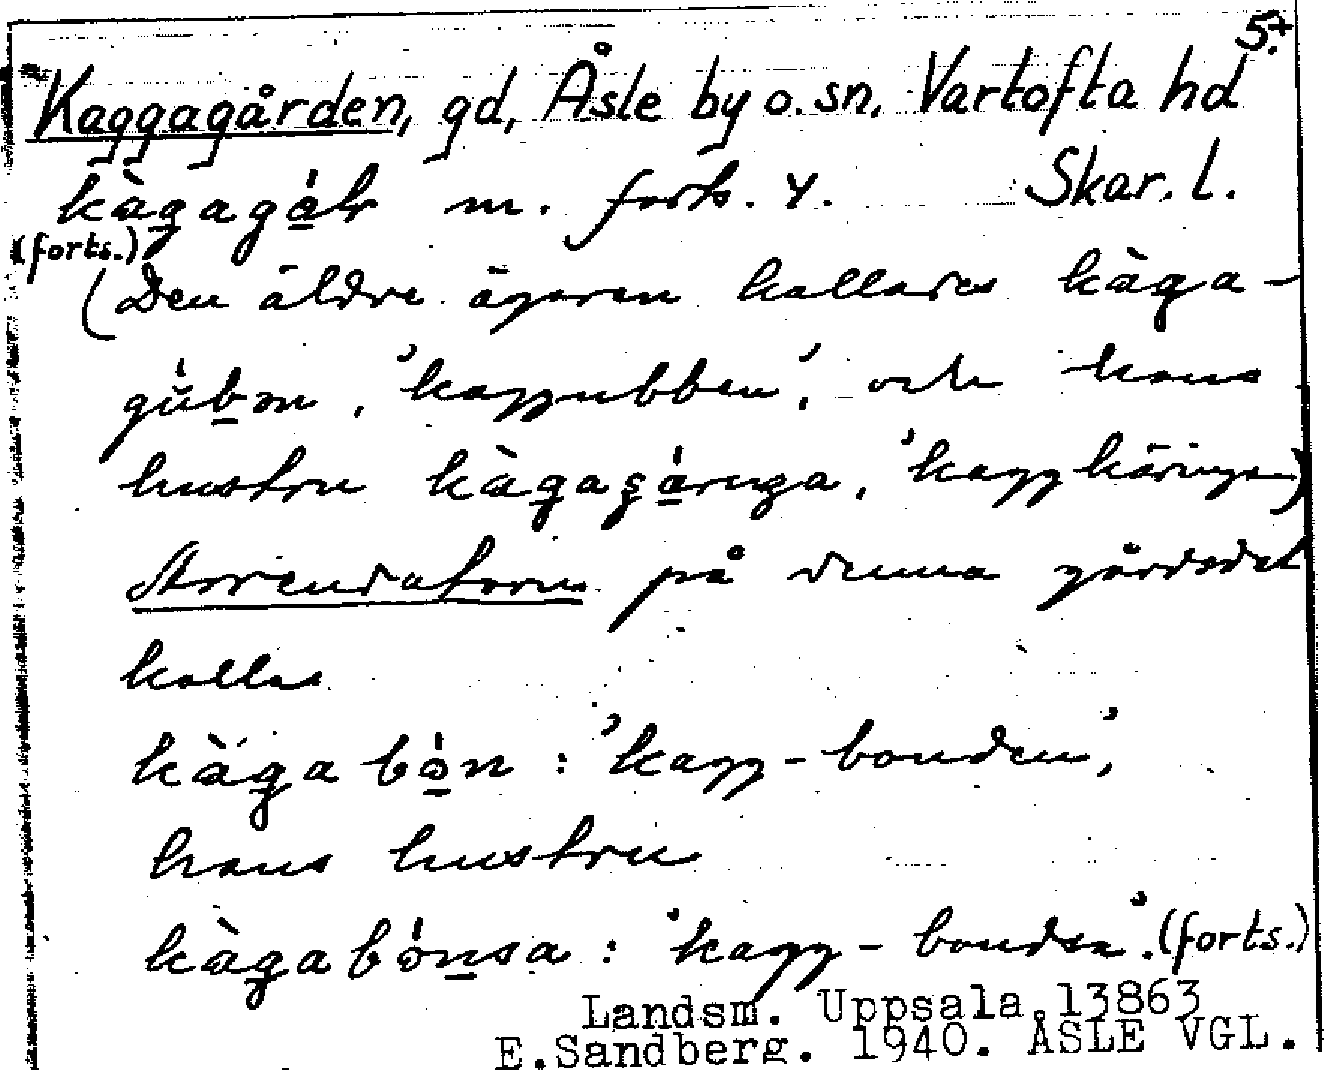 5.
Kaggagården, gd, Åsle by o. sn, Vartofta hd
kàgagáḷ m. forts. 4. Skar. l.
(forts.)
(Den äldre ägaren kallades kàga-
gǘbən, 'kaggubben', och hans
hustru kàgaçáriŋa, 'kaggkäringa')
Arrendatorn på denna gårdsdel
kallas
kàgabón : 'kagg-bonden',
hans hustru
kàgabónsa : 'kagg-bondsa'. (forts.)
Landsm. Uppsala 13863
E.Sandberg. 1940. ÅSLE VGL.